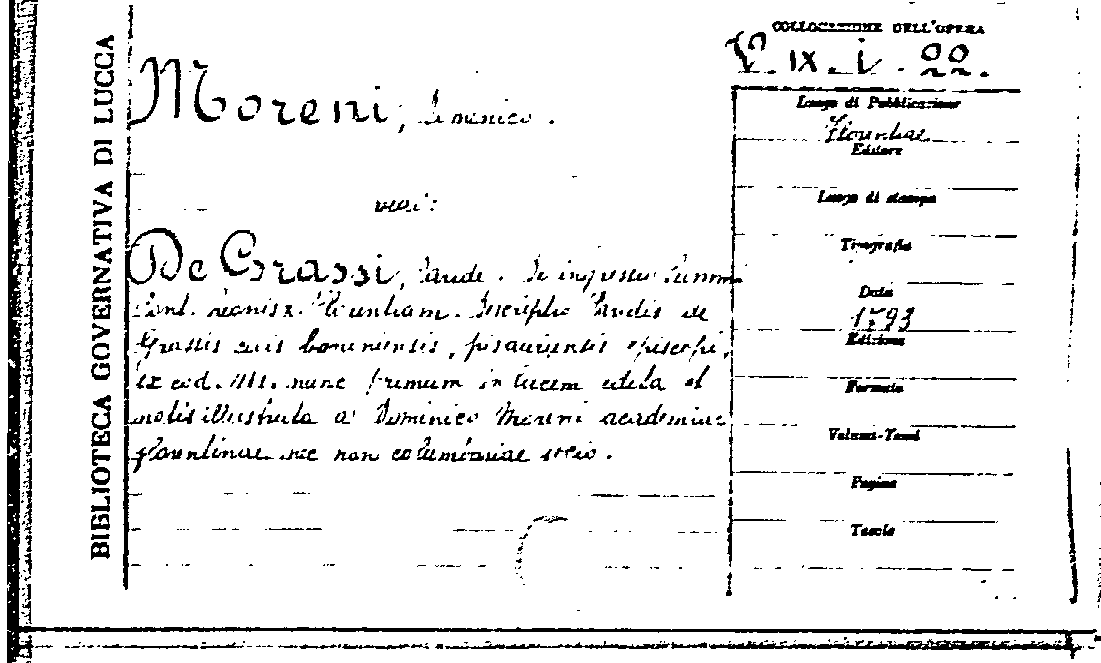 BIBLIOTECA GOVERNATIVA DI LUCCA
COLLOCAZIONE DELL'OPERA
IX. i. 22.
Moreni, Domenico.
vedi:
De Grassi, Paride. De ingressu Summi
Pont. Leonis X. Florentiam. Descriptio Paridis de
Grassis civis bononiensis, pisauriensis episcopi,
ex cod. Ms. nunc primum in lucem edita et
notis illustrata a Dominico Moreni academiae
florentinae nec non columbariae socio.
Luogo di Pubblicazione
Florentiae
Editore
Luogo di stampa
Tipografia
Data
1793
Edizione
Formato
Volumi-Tomi
Pagine
Tavole